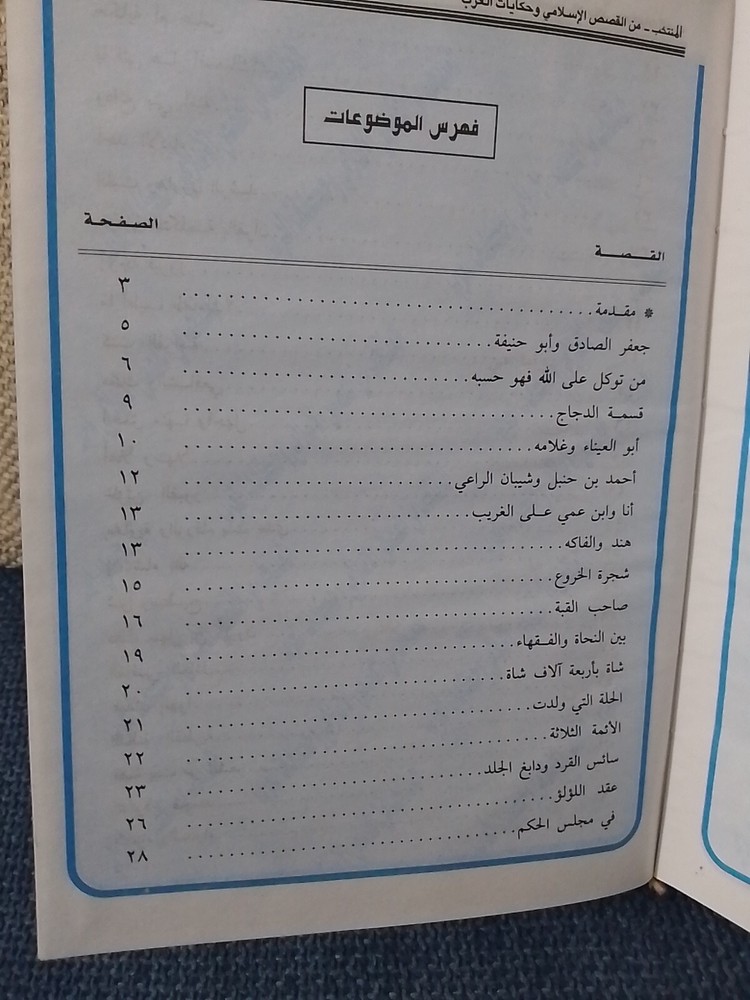 المنتخب - من القصص الإسلامي وحكايات العرب
فهرس الموضوعات
القـــصـــة الصـفـحـة
* مقـدمة ........................................ ٣
جعفر الصادق وأبو حنيفة ........................... ٥
من توكل على الله فهو حسبه ........................... ٦
قسمـة الدجاج ................................. ٩
أبو العيناء وغلامه ............................... ١٠
أحمد بن حنبل وشيبان الراعي ....................... ١٢
أنا وابن عمي عـلى الغريب ......................... ١٣
هند والفاكه ................................. ١٣
شجرة الخروع ................................ ١٥
صاحب القبة ................................ ١٦
بين النحاة والفـقهاء ............................. ١٩
شاة بأربعة آلاف شاة ............................ ٢٠
الحلة التي ولدت .............................. ٢١
الأئمة الثلاثة ............................... ٢٢
سائس القرد ودابغ الجلد ......................... ٢٣
عقد اللؤلؤ ................................ ٢٦
في مجلس الحكم ............................. ٢٨